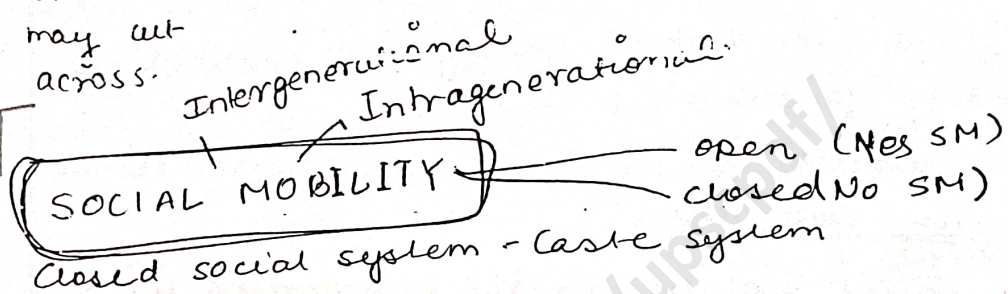 may cut
across.
Intergenerational
Intragenerational
SOCIAL MOBILITY
open (Yes SM)
closed No SM)
Closed social system - Caste system
/upscpdf/